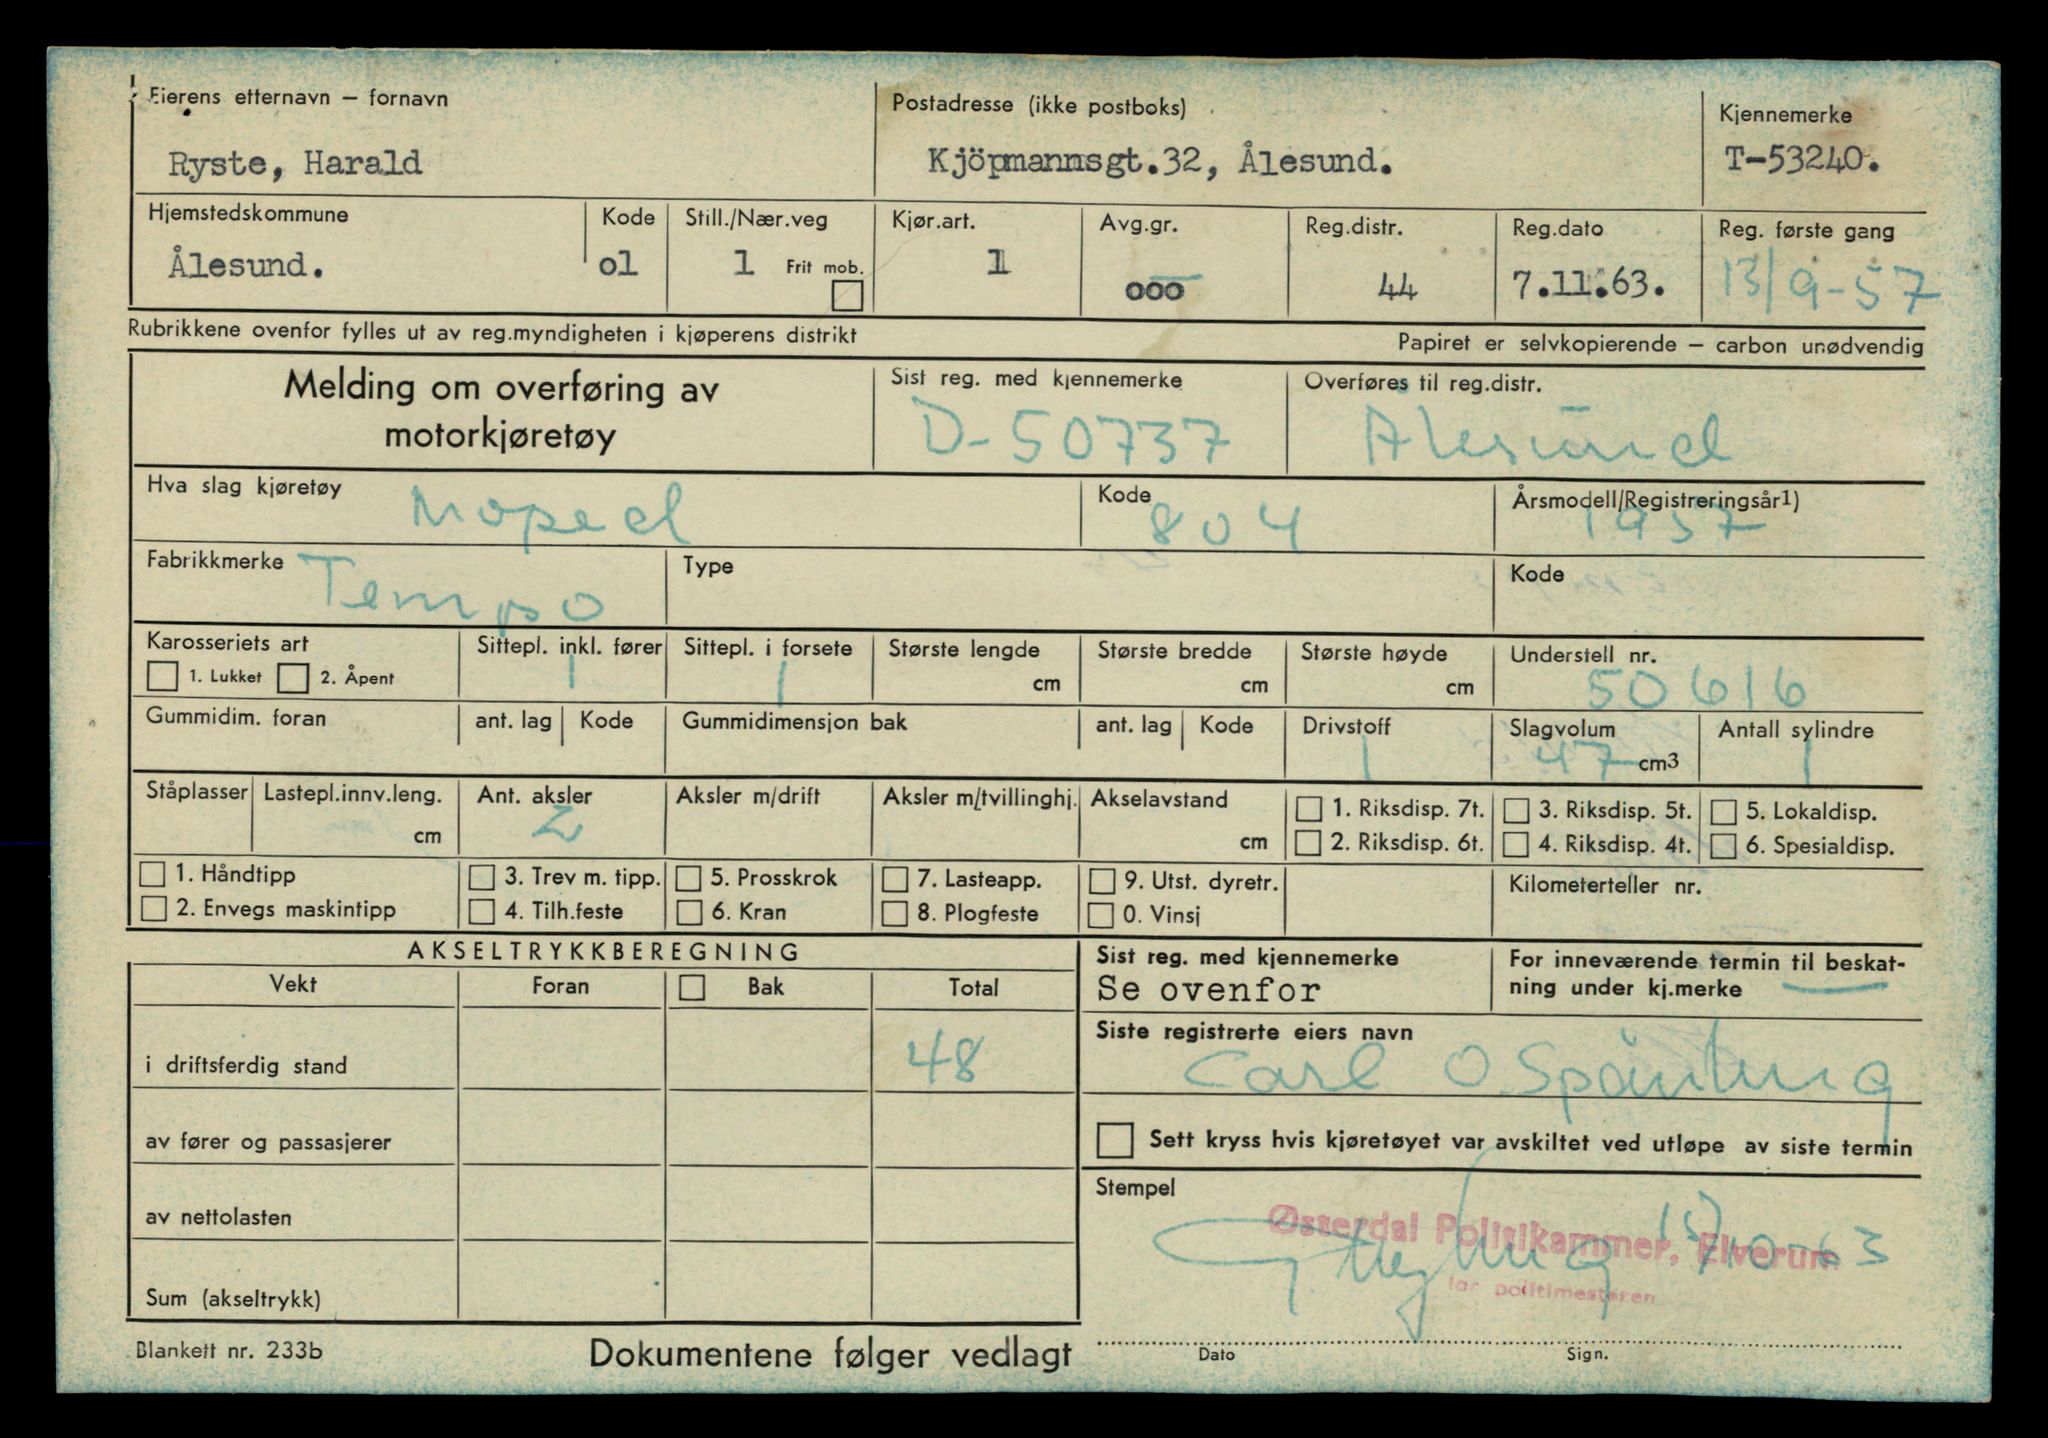 Eierens etternavn – fornavn
Ryste, Harald
Postadresse (ikke postboks)
Kjöpmannsgt.32, Ålesund.
Kjennemerke
T-53240.
Hjemstedskommune
Ålesund.
Kode
o1
Still./Nær.veg
1 Frit mob.
Kjør.art.
1
Avg.gr.
ooo
Reg.distr.
44
Reg.dato
7.11.63.
Reg. første gang
13/9-57
Rubrikkene ovenfor fylles ut av reg.myndigheten i kjøperens distrikt
Papiret er selvkopierende – carbon unødvendig
Melding om overføring av
motorkjøretøy
Sist reg. med kjennemerke
D-50737
Overføres til reg.distr.
Ålesund
Hva slag kjøretøy
Moped
Kode
804
Årsmodell/Registreringsår1)
1957
Fabrikkmerke
Tempo
Type
Kode
Karosseriets art
1. Lukket 2. Åpent
Sittepl. inkl. fører
1
Sittepl. i forsete
1
Største lengde
cm
Største bredde
cm
Største høyde
cm
Understell nr.
50616
Gummidim. foran
ant. lag Kode
Gummidimensjon bak
ant. lag Kode
Drivstoff
1
Slagvolum
47 cm3
Antall sylindre
1
Ståplasser
Lastepl.innv.leng.
cm
Ant. aksler
2
Aksler m/drift
Aksler m/tvillinghj.
Akselavstand
cm
1. Riksdisp. 7t. 3. Riksdisp. 5t. 5. Lokaldisp.
2. Riksdisp. 6t. 4. Riksdisp. 4t. 6. Spesialdisp.
1. Håndtipp 3. Trev m. tipp. 5. Prosskrok 7. Lasteapp. 9. Utst. dyretr.
2. Envegs maskintipp 4. Tilh.feste 6. Kran 8. Plogfeste 0. Vinsj
Kilometerteller nr.
AKSELTRYKKBEREGNING
Vekt Foran Bak Total
i driftsferdig stand 48
av fører og passasjerer
av nettolasten
Sum (akseltrykk)
Sist reg. med kjennemerke
Se ovenfor
For inneværende termin til beskat-
ning under kj.merke
Siste registrerte eiers navn
Carl O.
Sett kryss hvis kjøretøyet var avskiltet ved utløpe av siste termin
Stempel
Østerdal Politikammer, Elverum
for politimesteren
Dato Sign.
Blankett nr. 233b
Dokumentene følger vedlagt